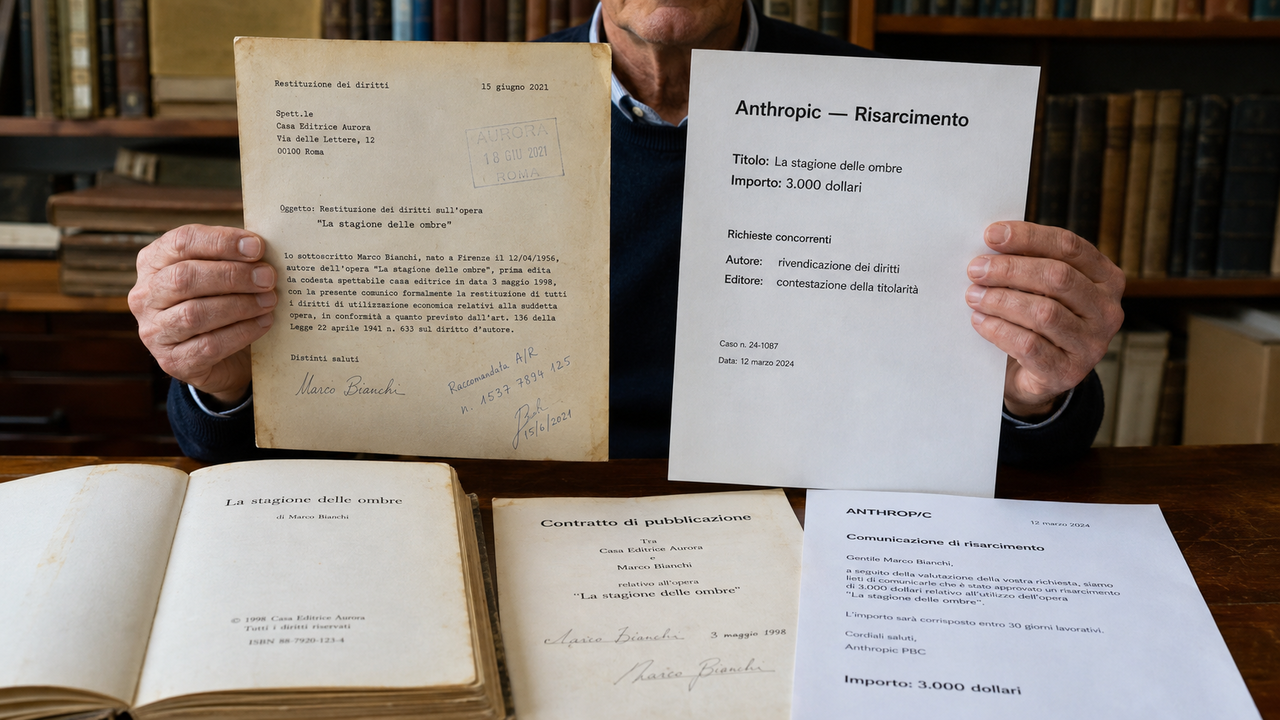 Restituzione dei diritti
15 giugno 2021
Spett.le
Casa Editrice Aurora
Via delle Lettere, 12
00100 Roma
AURORA
18 GIU 2021
ROMA
Oggetto: Restituzione dei diritti sull'opera
"La stagione delle ombre"
lo sottoscritto Marco Bianchi, nato a Firenze il 12/04/1956,
autore dell'opera "La stagione delle ombre", prima edita
da codesta spettabile casa editrice in data 3 maggio 1998,
con la presente comunico formalmente la restituzione di tutti
i diritti di utilizzazione economica relativi alla suddetta
opera, in conformità a quanto previsto dall'art. 136 della
Legge 22 aprile 1941 n. 633 sul diritto d'autore.
Distinti saluti
Marco Bianchi
Raccomandata A/R
n. 1537 7894 125
15/6/2021
Anthropic — Risarcimento
Titolo: La stagione delle ombre
Importo: 3.000 dollari
Richieste concorrenti
Autore: rivendicazione dei diritti
Editore: contestazione della titolarità
Caso n. 24-1087
Data: 12 marzo 2024
La stagione delle ombre
di Marco Bianchi
© 1998 Casa Editrice Aurora
Tutti i diritti riservati
ISBN 88-7920-123-4
Contratto di pubblicazione
Tra
Casa Editrice Aurora
e
Marco Bianchi
relativo all'opera
"La stagione delle ombre"
Marco Bianchi 3 maggio 1998
Marco Bianchi
ANTHROP/C
12 marzo 2024
Comunicazione di risarcimento
Gentile Marco Bianchi,
a seguito della valutazione della vostra richiesta, siamo
lieti di comunicarle che è stato approvato un risarcimento
di 3.000 dollari relativo all'utilizzo dell'opera
"La stagione delle ombre".
L'importo sarà corrisposto entro 30 giorni lavorativi.
Cordiali saluti,
Anthropic PBC
Importo: 3.000 dollari